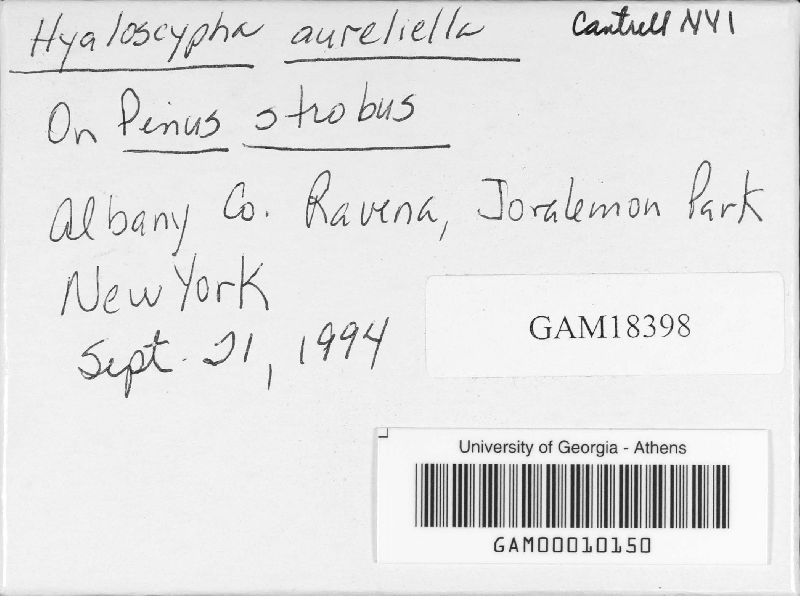 Hyaloscypha aureliella
Cantrell NY1
On Pinus strobus
Albany Co. Ravena, Joralemon Park
New York
Sept. 21, 1994
GAM18398
University of Georgia - Athens
GAM00010150